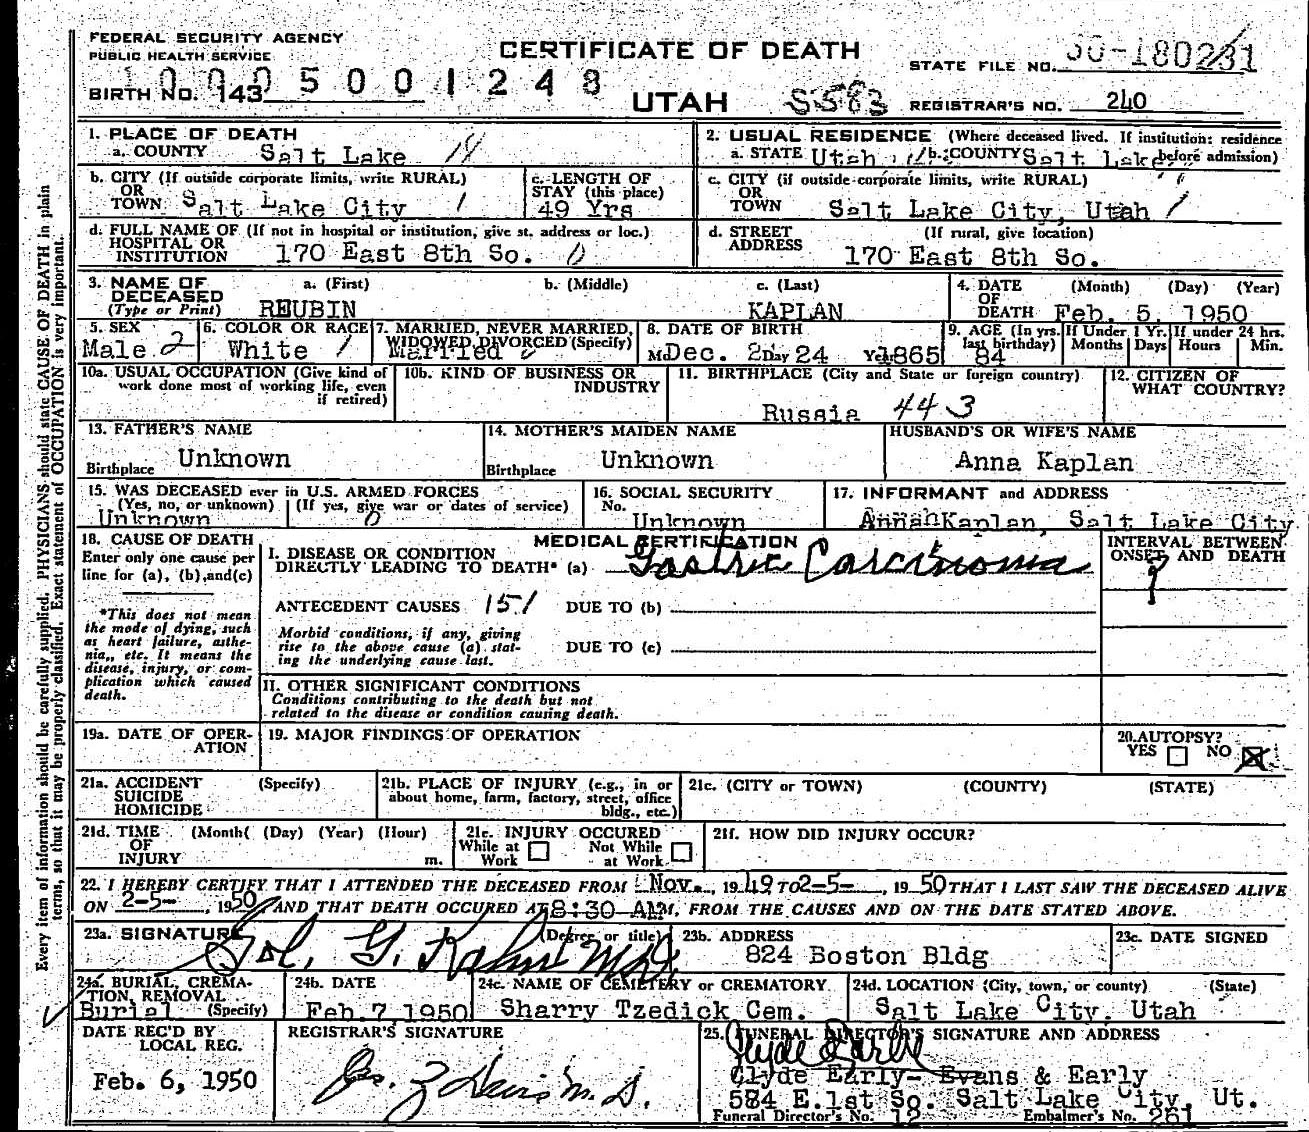 FEDERAL SECURITY AGENCY
PUBLIC HEALTH SERVICE
CERTIFICATE OF DEATH
STATE FILE NO.
10005001248
BIRTH NO. 143
UTAH
S583
REGISTRAR'S NO. 240
1. PLACE OF DEATH
a. COUNTY Salt Lake
2. USUAL RESIDENCE (Where deceased lived. If institution: residence before admission)
a. STATE Utah b. COUNTY Salt Lake
b. CITY (If outside corporate limits, write RURAL)
OR
TOWN Salt Lake City 1
c. LENGTH OF
STAY (this place)
49 Yrs
c. CITY (if outside corporate limits, write RURAL)
OR
TOWN Salt Lake City, Utah 1
d. FULL NAME OF (If not in hospital or institution, give st. address or loc.)
HOSPITAL OR
INSTITUTION 170 East 8th So. 0
d. STREET (If rural, give location)
ADDRESS 170 East 8th So.
3. NAME OF
DECEASED
(Type or Print)
a. (First) REUBIN
b. (Middle)
c. (Last) KAPLAN
4. DATE (Month) (Day) (Year)
OF
DEATH Feb. 5, 1950
5. SEX
Male 2
6. COLOR OR RACE
White 1
7. MARRIED, NEVER MARRIED,
WIDOWED DIVORCED (Specify)
Married
8. DATE OF BIRTH
Dec. Day 24 1865
9. AGE (In yrs. last birthday) 84
If Under 1 Yr. Months Days
If under 24 hrs. Hours Min.
10a. USUAL OCCUPATION (Give kind of
work done most of working life, even
if retired)
10b. KIND OF BUSINESS OR
INDUSTRY
11. BIRTHPLACE (City and State or foreign country)
Russia 443
12. CITIZEN OF
WHAT COUNTRY?
13. FATHER'S NAME
Birthplace Unknown
14. MOTHER'S MAIDEN NAME
Birthplace Unknown
HUSBAND'S OR WIFE'S NAME
Anna Kaplan
15. WAS DECEASED ever in U.S. ARMED FORCES
(Yes, no, or unknown) (If yes, give war or dates of service)
Unknown 0
16. SOCIAL SECURITY
No. Unknown
17. INFORMANT and ADDRESS
Annah Kaplan, Salt Lake City
18. CAUSE OF DEATH
Enter only one cause per
line for (a), (b), and (c)
*This does not mean
the mode of dying, such
as heart failure, asthe-
nia,, etc. It means the
disease, injury, or com-
plication which caused
death.
MEDICAL CERTIFICATION
I. DISEASE OR CONDITION
DIRECTLY LEADING TO DEATH* (a) Gastric Carcinoma
ANTECEDENT CAUSES 151 DUE TO (b)
Morbid conditions, if any, giving
rise to the above cause (a) stat-
ing the underlying cause last.
DUE TO (c)
INTERVAL BETWEEN
ONSET AND DEATH
?
II. OTHER SIGNIFICANT CONDITIONS
Conditions contributing to the death but not
related to the disease or condition causing death.
19a. DATE OF OPER-
ATION
19. MAJOR FINDINGS OF OPERATION
20. AUTOPSY?
YES NO X
21a. ACCIDENT (Specify)
SUICIDE
HOMICIDE
21b. PLACE OF INJURY (e.g., in or
about home, farm, factory, street, office
bldg., etc.)
21c. (CITY or TOWN) (COUNTY) (STATE)
21d. TIME (Month( (Day) (Year) (Hour)
OF
INJURY m.
21e. INJURY OCCURED
While at Work Not While at Work
21f. HOW DID INJURY OCCUR?
22. I HEREBY CERTIFY THAT I ATTENDED THE DECEASED FROM Nov., 1949 TO 2-5-, 1950 THAT I LAST SAW THE DECEASED ALIVE
ON 2-5-, 1950 AND THAT DEATH OCCURED AT 8:30 AM, FROM THE CAUSES AND ON THE DATE STATED ABOVE.
23a. SIGNATURE (Degree or title)
Sol. G. Kahn M.D.
23b. ADDRESS
824 Boston Bldg
23c. DATE SIGNED
24a. BURIAL, CREMA-
TION, REMOVAL
Burial (Specify)
24b. DATE
Feb. 7 1950
24c. NAME OF CEMETERY or CREMATORY
Sharry Tzedick Cem.
24d. LOCATION (City, town, or county) (State)
Salt Lake City, Utah
DATE REC'D BY
LOCAL REG.
Feb. 6, 1950
REGISTRAR'S SIGNATURE
25. FUNERAL DIRECTOR'S SIGNATURE AND ADDRESS
Clyde Early
Clyde Early- Evans & Early
584 E. 1st So. Salt Lake City, Ut.
Funeral Director's No. 12 Embalmer's No. 261
Every item of information should be carefully supplied. PHYSICIANS should state CAUSE OF DEATH in plain
terms, so that it may be properly classified. Exact statement of OCCUPATION is very important.